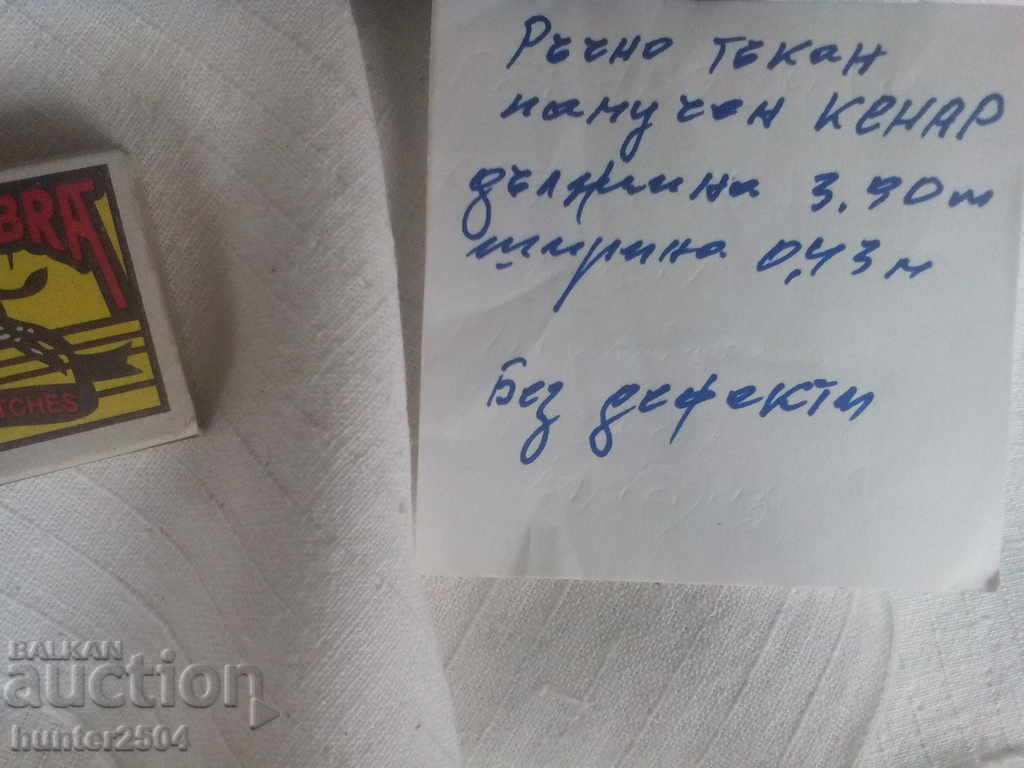 Ръчно тъкан
памучен КЕНАР
дължина 3,90 м
ширина 0,43 м
Без дефекти
BRA
TCHES
BALKAN
auction
hunter2504